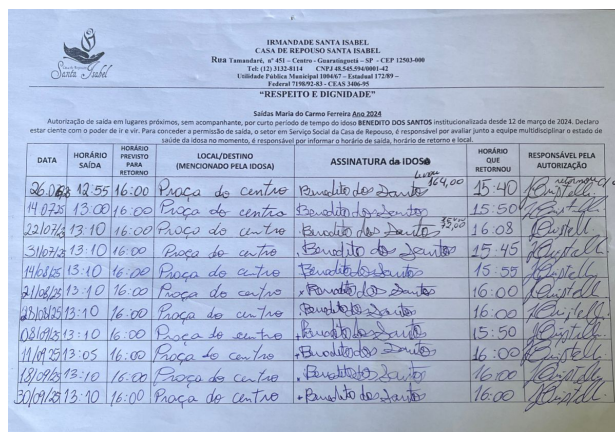 Santa Isabel
IRMANDADE SANTA ISABEL
CASA DE REPOUSO SANTA ISABEL
Rua Tamandaré, nº 451 – Centro - Guaratinguetá – SP - CEP 12503-000
Tel: (12) 3132-8114 CNPJ 48.545.594/0001-42
Utilidade Pública Municipal 1004/67 – Estadual 172/89 –
Federal 7198/92-83 - CEAS 3406-95
“RESPEITO E DIGNIDADE”
Saídas Maria do Carmo Ferreira Ano 2024
Autorização de saída em lugares próximos, sem acompanhante, por curto período de tempo do idoso BENEDITO DOS SANTOS institucionalizada desde 12 de março de 2024. Declaro
estar ciente com o poder de ir e vir. Para conceder a permissão de saída, o setor em Serviço Social da Casa de Repouso, é responsável por avaliar junto a equipe multidisciplinar o estado de
saúde da idosa no momento, é responsável por informar o horário de saída, horário de retorno e local.
DATA HORÁRIO SAÍDA HORÁRIO PREVISTO PARA RETORNO LOCAL/DESTINO (MENCIONADO PELA IDOSA) ASSINATURA da IDOSO HORÁRIO QUE RETORNOU RESPONSÁVEL PELA AUTORIZAÇÃO
12:55 16:00 Praça do centro Benedito dos Santos 164,00 15:40
14.07.25 13:00 16:00 Praça do centro Benedito dos Santos 15:50
13:10 16:00 Praça do centro Benedito dos Santos 16:08
31/07/25 13:10 16:00 Praça do centro Benedito dos Santos 15:45
14/08/25 13:10 16:00 Praça do centro Benedito dos Santos 15:55
21/08/25 13:10 16:00 Praça do centro Benedito dos Santos 16:00
28/08/25 13:10 16:00 Praça do centro Benedito dos Santos 16:00
08/09/25 13:10 16:00 Praça do centro Benedito dos Santos 15:50
11/09/25 13:05 16:00 Praça do centro Benedito dos Santos 16:00
18/09/25 13:10 16:00 Praça do centro Benedito dos Santos 16:00
30/09/25 13:10 16:00 Praça do centro Benedito dos Santos 16:00